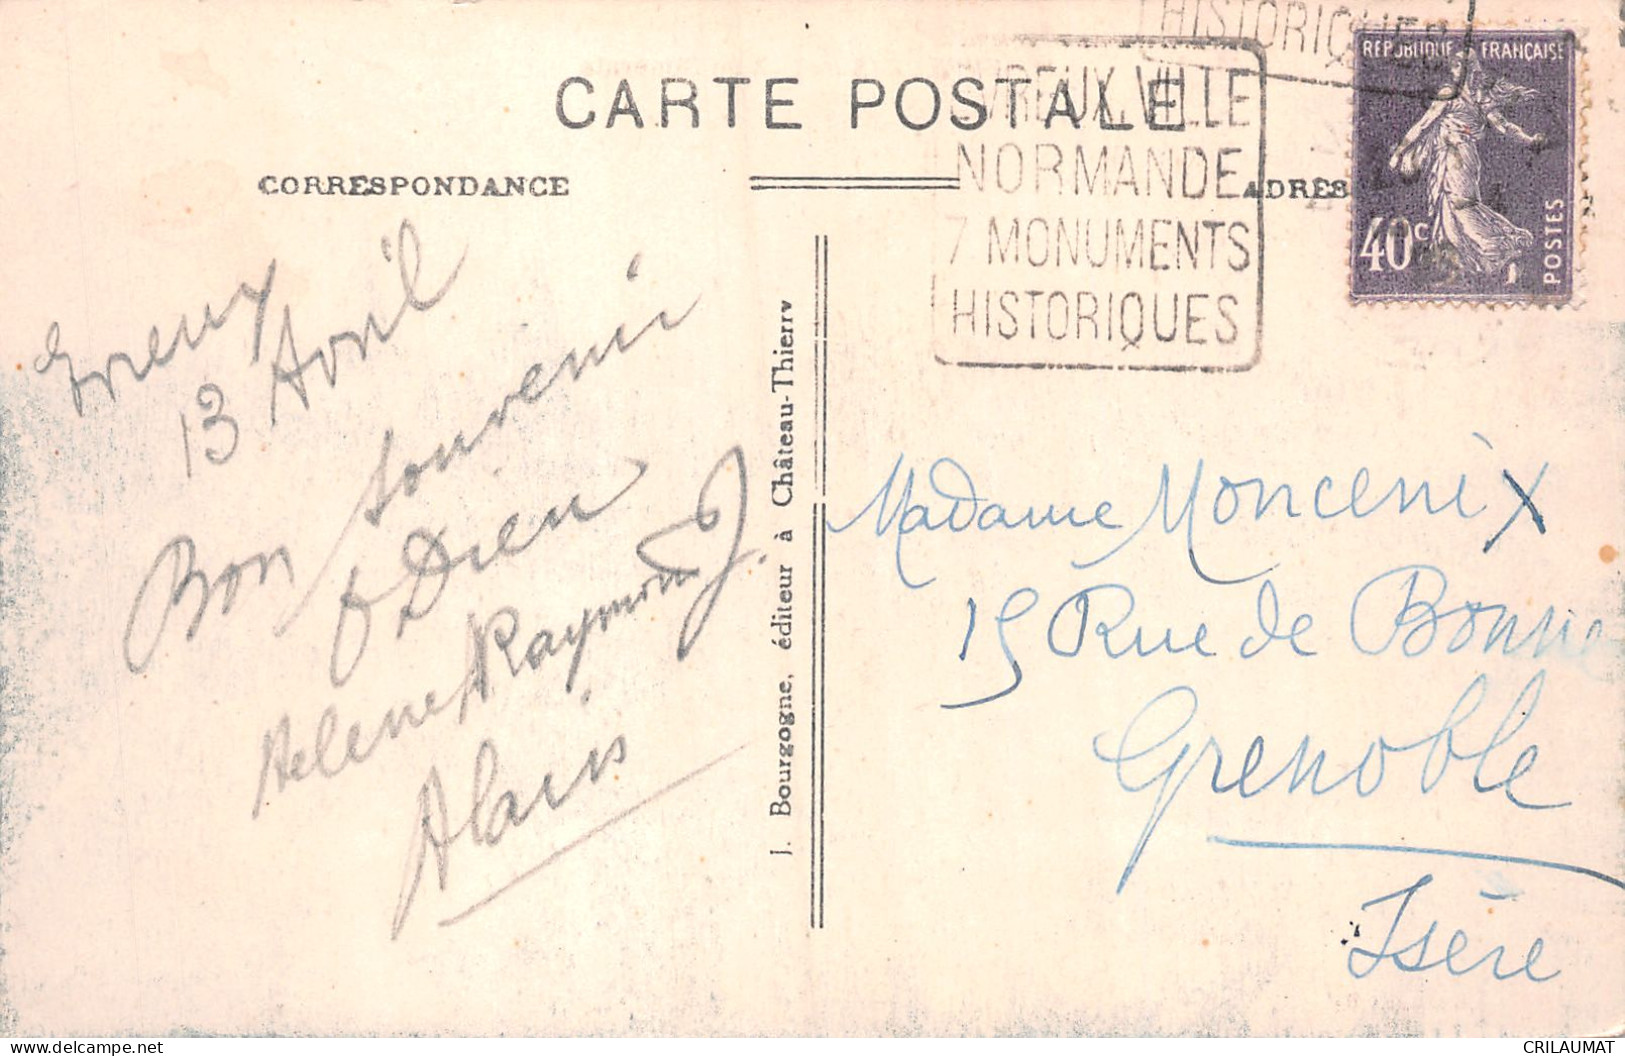 CARTE POSTALE
CORRESPONDANCE
ADRES
HISTORIQUES
EVREUX, VILLE
NORMANDE
7 MONUMENTS
HISTORIQUES
REPUBLIQUE FRANÇAISE
40c
POSTES
Evreux
13 Avril
Bon souvenir
Dieu
Helene Raymond J.
Alain
J. Bourgogne, éditeur à Château-Thierry
Madame Moncenix
15 Rue de Bonne
Grenoble
Isère
CRILAUMAT